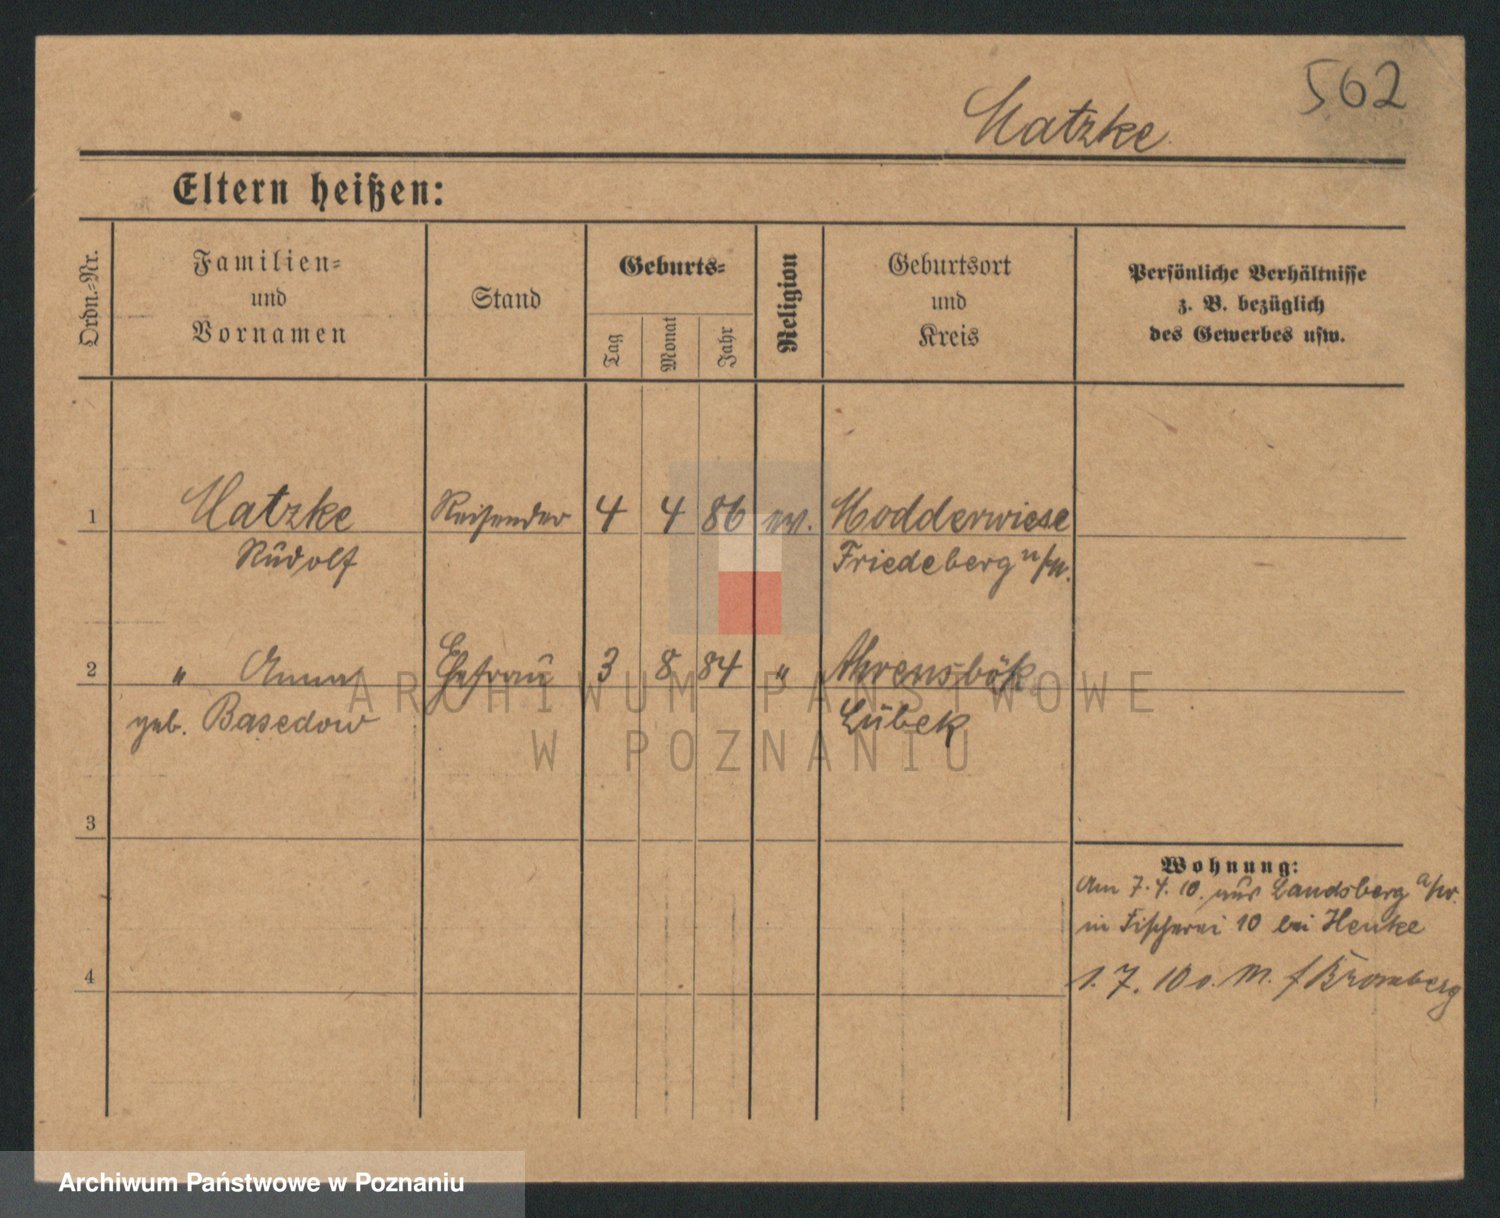 562
Matzke
Eltern heißen:
Ordn.-Nr.
Familien-
und
Vornamen
Stand
Geburts-
Tag
Monat
Jahr
Religion
Geburtsort
und
Kreis
Persönliche Verhältnisse
z. B. bezüglich
des Gewerbes usw.
1 Matzke Reisender 4 4 86 ev. Modderwiese
Rudolf Friedeberg n/m.
2 " Anna Ehefrau 3 8 84 " Ahrensbök
geb. Basedow Lübek
3
Wohnung:
Am 7.4.10. aus Landsberg a/w.
in Fischerei 10 bei Henke
4
1.7.10 o. M. f Bromberg
ARCHIWUM PAŃSTWOWE
W POZNANIU
Archiwum Państwowe w Poznaniu